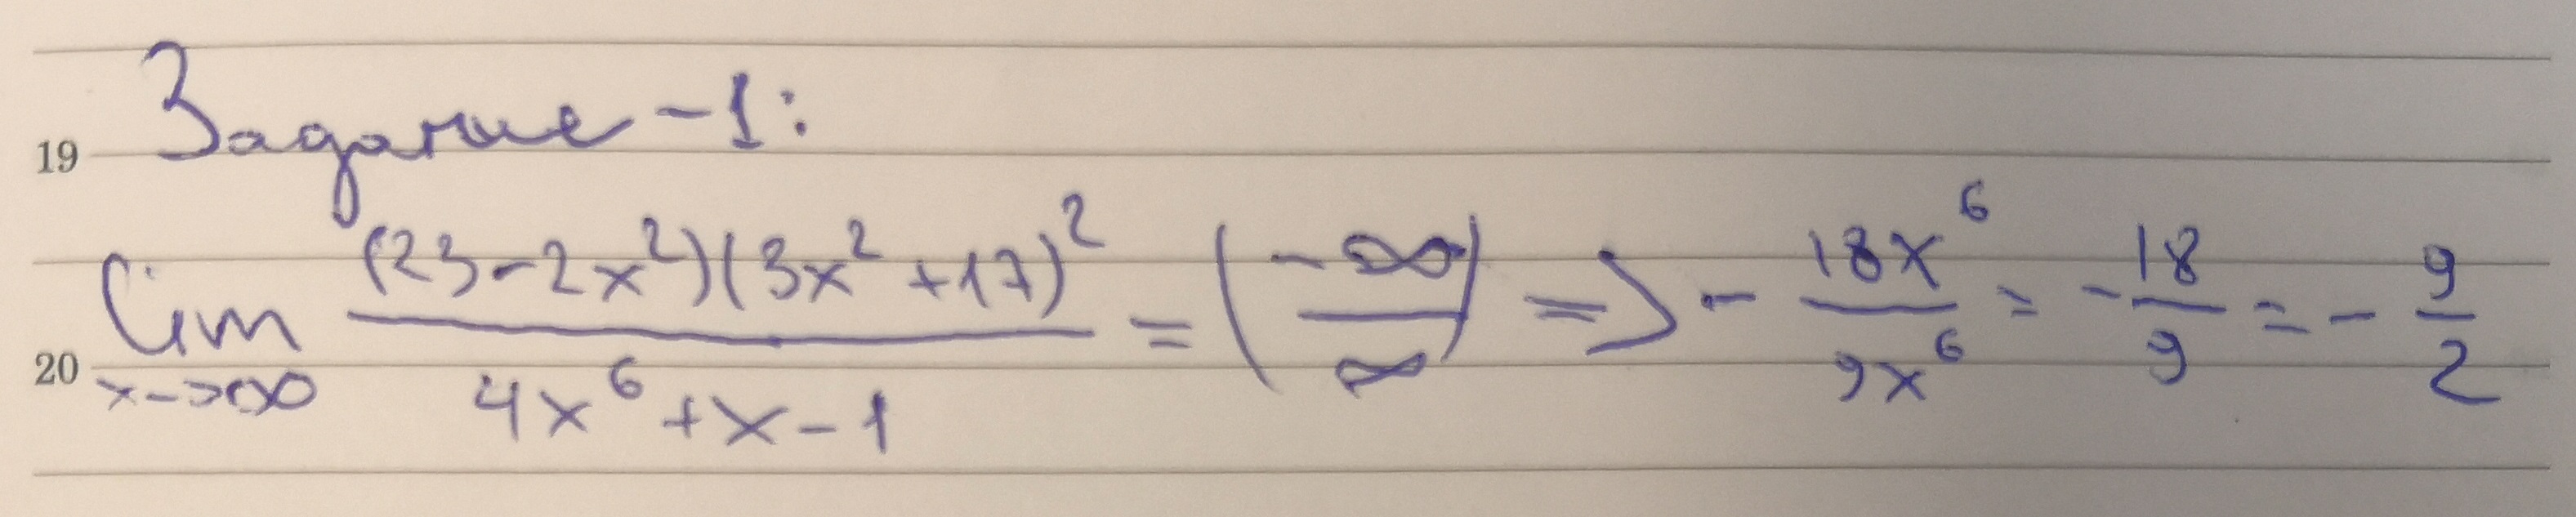 Задание -1:
19
lim x->∞ (23-2x²)(3x²+17)² / 4x⁶+x-1 = (-∞/∞) => - 18x⁶/9x⁶ = - 18/9 = - 9/2
20